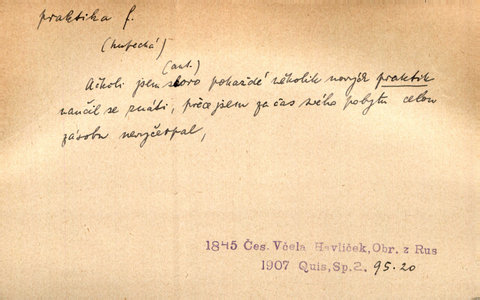 praktika f.
(kupecká)
(aut.)
Ačkoli jsem skoro pokaždé několik nových praktik
naučil se znáti, přece jsem za čas svého pobytu celou
zásobu nevyčerpal,
1845 Čes. Včela Havlíček, Obr. z Rus
1907 Quis, Sp.2. 95.20